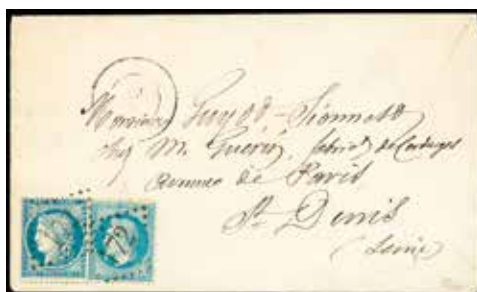 Monsieur Guyot-
chez M. Guérin, fabrict de Cordages
Avenue de Paris
St Denis
(Seine)
72